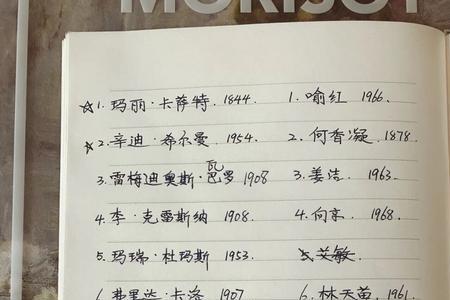 MORISOT
☆1. 玛丽·卡萨特. 1844.
☆2. 辛迪·希尔曼. 1954.
3. 雷梅迪奥斯·瓦罗 1908
4. 李·克雷斯纳 1908.
5. 玛瑞·杜玛斯 1953.
6. 弗里达·卡洛 1907
1. 喻红 1966.
2. 何香凝. 1878.
3. 姜洁. 1963.
4. 向京. 1968.
6. 林天苗. 1961.